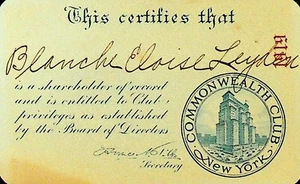 This certifies that
Blanche Eloise Leyden
is a shareholder of record
and is entitled to Club
privileges as established
by the Board of Directors
Secretary
COMMONWEALTH CLUB
New York